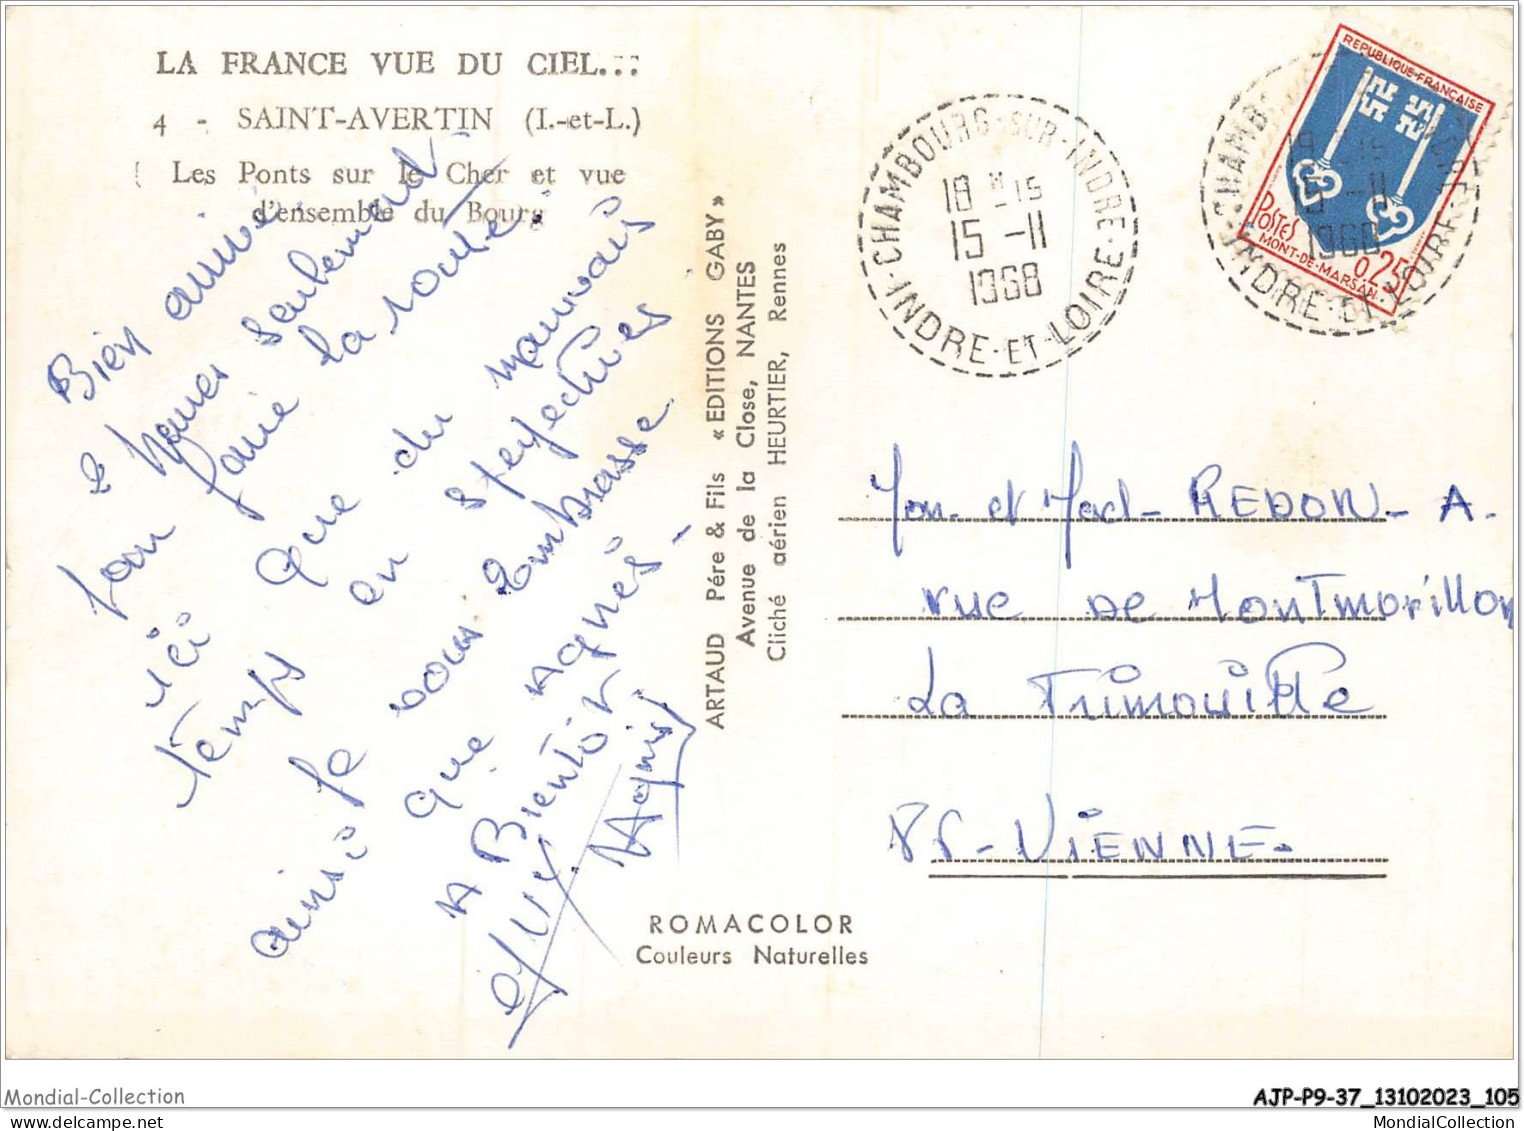 LA FRANCE VUE DU CIEL...
4 - SAINT-AVERTIN (I.-et-L.)
Les Ponts sur le Cher et vue
d'ensemble du Bourg
Bien arrivé
2 heures seulement
pour faire la route
ici que du mauvais
temps en
ainsi je vous embrasse
que Agnès -
A Bientôt
Agnès
ARTAUD Pére & Fils « EDITIONS GABY »
Avenue de la Close, NANTES
Cliché aérien HEURTIER, Rennes
ROMACOLOR
Couleurs Naturelles
CHAMBOURG-SUR-INDRE
18 H 15
15 -11
1968
INDRE-ET-LOIRE
REPUBLIQUE-FRANÇAISE
POSTES
0,25
MONT-DE-MARSAN
18 H 15
15 -11
1968
INDRE-ET-LOIRE
Mon. et Mad- REDON- A.
rue de Montmorillon
La Trimouille
86-VIENNE.
Mondial-Collection
AJP-P9-37_13102023_105
MondialCollection